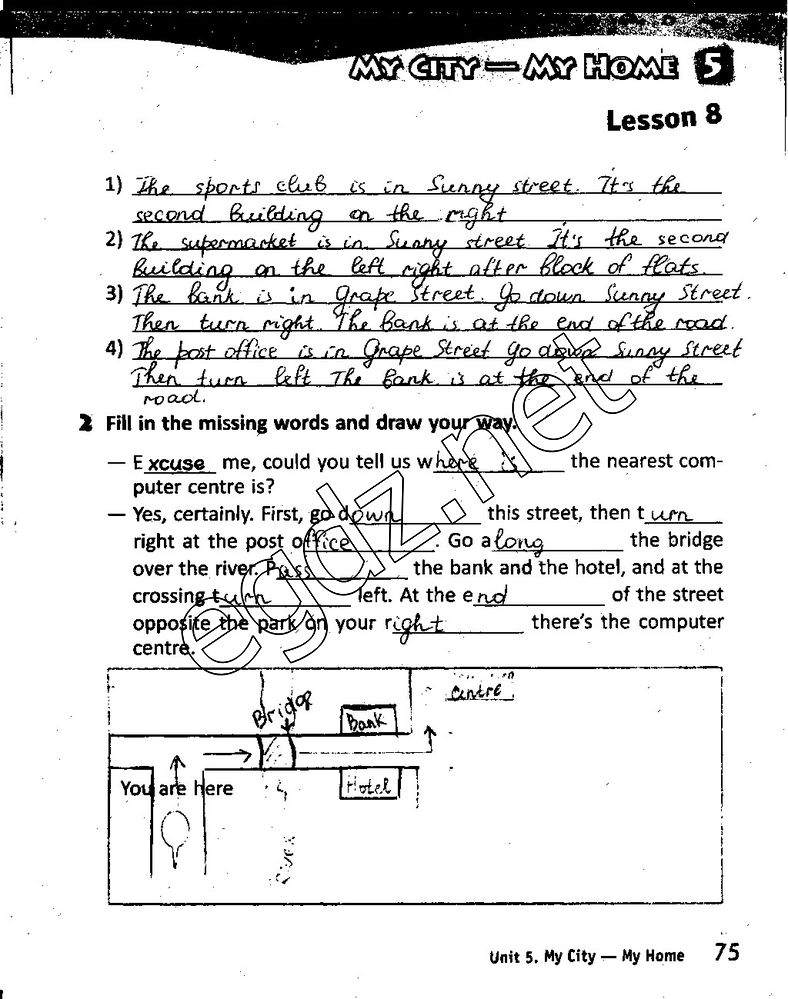 MY CITY — MY HOME 5
Lesson 8
1) The sports club is in Sunny street. It's the
second building on the right
2) The supermarket is in Sunny street It's the second
building on the left right after block of flats.
3) The bank is in Grape Street. Go down Sunny Street.
Then turn right. The bank is at the end of the road.
4) The post office is in Grape Street Go down Sunny Street
Then turn left The bank is at the end of the
road.
2 Fill in the missing words and draw your way.
— Excuse me, could you tell us where is the nearest com-
puter centre is?
— Yes, certainly. First, go down this street, then turn
right at the post office. Go along the bridge
over the river. Pass the bank and the hotel, and at the
crossing turn left. At the end of the street
opposite the park on your right there's the computer
centre.
centre
Bridge
Bank
You are here
Hotel
River
Unit 5. My City — My Home 75
egdz.net